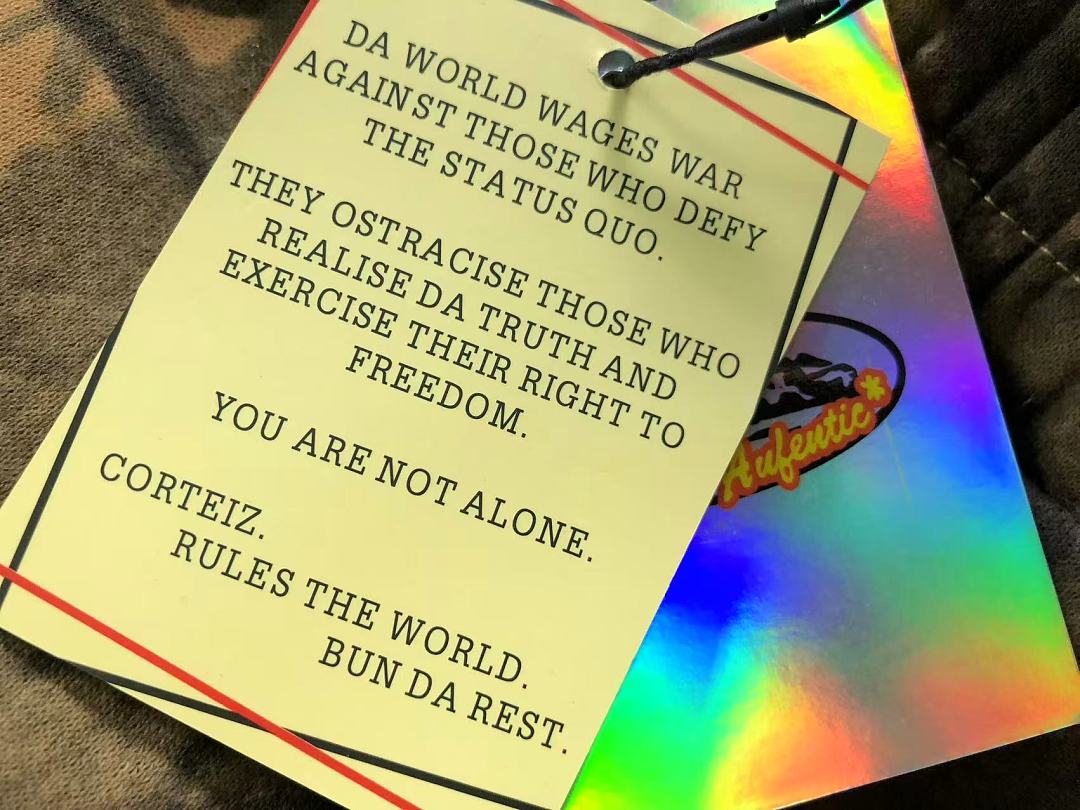 DA WORLD WAGES WAR
AGAINST THOSE WHO DEFY
THE STATUS QUO.
THEY OSTRACISE THOSE WHO
REALISE DA TRUTH AND
EXERCISE THEIR RIGHT TO
FREEDOM.
YOU ARE NOT ALONE.
CORTEIZ.
RULES THE WORLD.
BUN DA REST.
Aufentic*